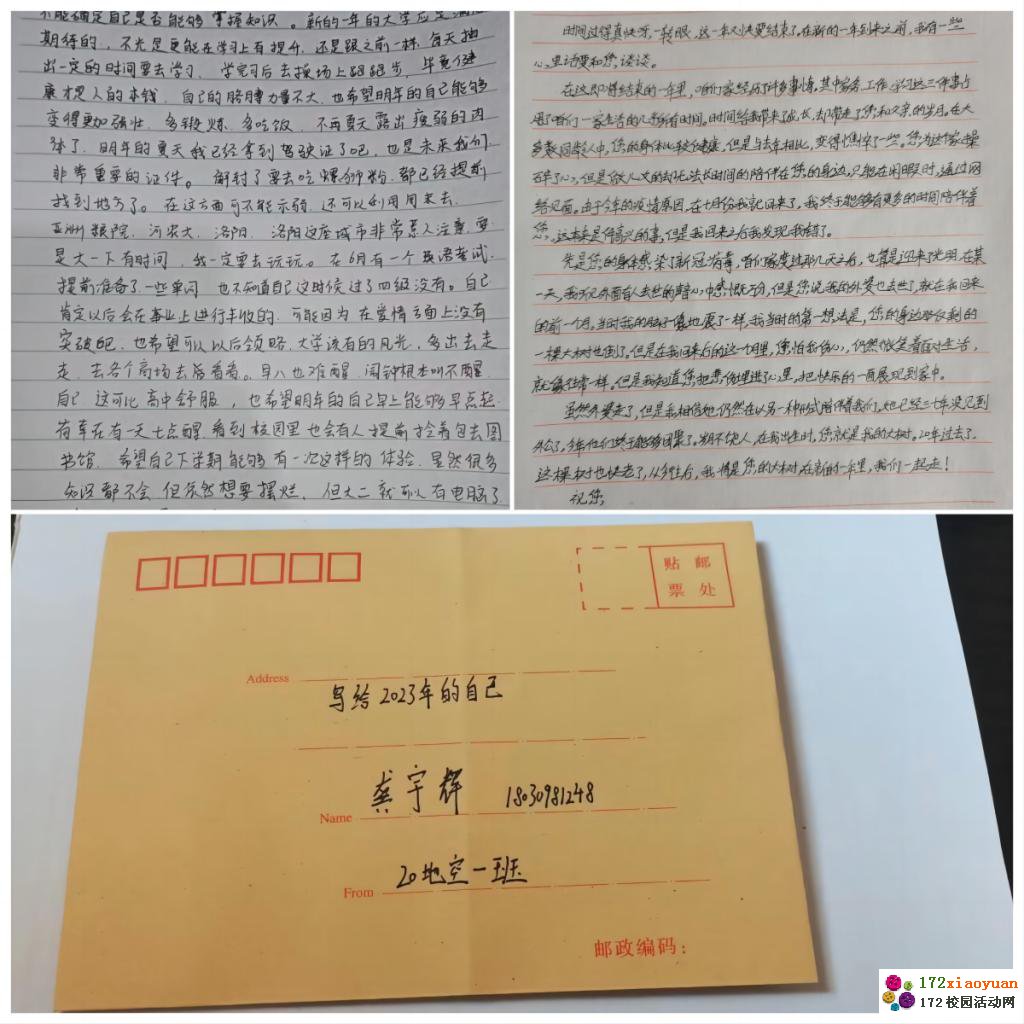 不能确定自己是否能够掌握知识。新的一年的大学应是满怀
期待的,不光是更能在学习上有提升,还是跟之前一样,每天抽
出一定的时间要去学习,学完习后去操场上跑跑步,毕竟健
康才是人的本钱,自己的胳膊力量不大,也希望明年的自己能够
变得更加强壮,多锻炼,多吃饭,不再夏天露出瘦弱的肉
体了,明年的夏天我已经拿到驾驶证了吧,也是未来我们
非常重要的证件。解封了要去吃螺蛳粉,都已经提前
找到地方了。在这方面可不能示弱,还可以利用周末去
亚洲粮院,河农大,洛阳,洛阳这座城市非常系人注意,要
是大一下有时间,我一定要去玩玩。在6月有一个英语考试,
提前准备了一些单词,也不知道自己这时候过了四级没有。自己
肯定以后会在事业上进行丰收的,可能因为在爱情方面上没有
突破吧,也希望可以以后领略,大学该有的风光,多出去走
走,去各个商场去看看。早八也难醒,闹钟根本叫不醒
自己,这可比高中舒服,也希望明年的自己早上能够早点起
荷车在有一天七点醒,看到校园里也会有人提前拎着包去图
书馆,希望自己下学期能够有一次这样的体验,虽然很多
知识都不会,但依然想要摆烂,但大二就可以有电脑了
时间过得真快呀,一转眼,这一年又快要结束了。在新的一年到来之前,我有一些
心里话要和您谈谈。
在这即将结束的一年里,咱们家经历了许多事情,其中家务、工作、学习这三件事占
据了咱们一家生活的几乎所有时间。时间给我带来了成长,却带走了您和父亲的岁月。在大
多数同龄人中,您的身体比较健康,但是与去年相比,变得憔悴了一些。您为这个家操
碎了心,但是做儿女的却无法长时间的陪伴在您的身边,只能在闲暇时,通过网
络见面。由于今年的疫情原因,在十月份我就回来了,我终于能够有更多的时间陪伴着
您。这本来是件高兴的事,但是我回来之后我发现我错了。
先是您的身体感染了新冠病毒,咱们度过那几天之后,也算是迎来光明,在某
一天,我看见外面有人去世的
但是您说我的外婆也去世了,就在我回来
的前一个月,当时我的脑子像地震了一样,我当时的第一想法是,您的身边
的
一棵大树也倒了。但是在我回来后的这一个月里,您怕我伤心,仍然微笑着面对生活,
就像往常一样。但是我知道您把悲伤埋进了心里,把快乐的一面展现到家中。
虽然外婆走了,但是我相信她仍然在以另一种形式陪伴着我们,她已经三十年没见到
外公了,今年他们终于能够团聚了。岁月不饶人,在我出生时,您就是我的大树。20年过去了,
这棵大树也快老了,从今往后,我将是您的大树,在新的一年里,我们一起走!
祝您
贴 邮
票 处
Address
写给2023年的自己
Name 龚宇辉 18030981248
From 20地空一班
邮政编码:
172xiaoyuan
172校园活动网